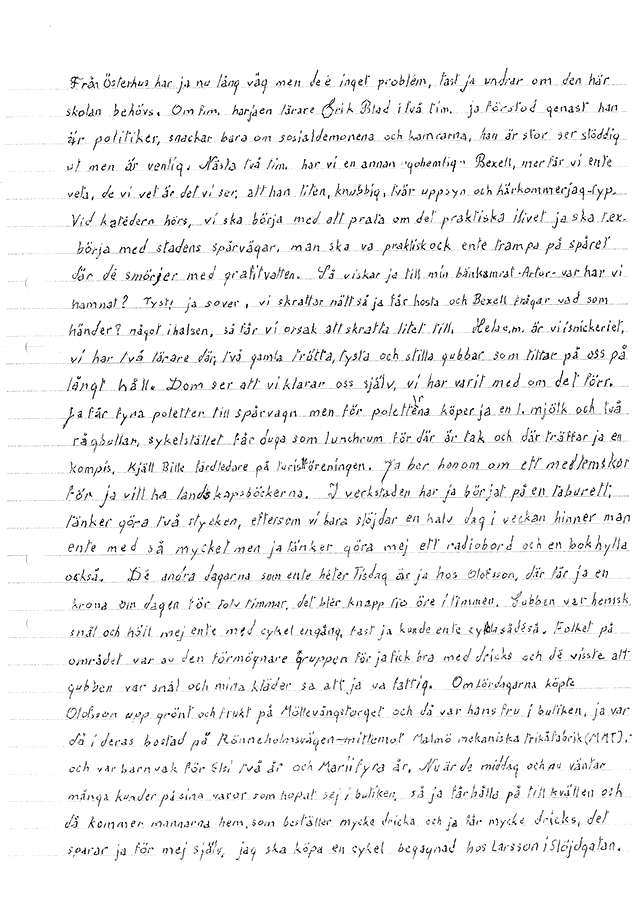 Från Österhus har ja nu lång väg men deé inget problem, fast ja undrar om den här
skolan behövs. Om f.m. har jaen lärare Erik Blad i två tim. ja förstod genast han
är politiker, snackar bara om sosialdemonena och kamrarna, han är stor ser stöddig
ut men är ventig. Nästa två tim. har vi en annan "gohemlig" Bexell, mer får vi ente
veta, de vi vet är det vi ser, att han liten, knubbig, tvär uppsyn och härkommerjag-typ.
Vid katedern hörs, vi ska börja med att prata om det praktiska ilivet ja ska t.ex.
börja med stadens spårvägar, man ska va praktisk ock ente trampa på spåret
där dé smörjer med grafitvatten. Så viskar ja till min bänkamrat-Artur- var har vi
hamnat? Tyst! ja sover, vi skrattar nätt så ja får hosta och Bexell frågar vad som
händer? något ihalsen, så får vi orsak att skratta litet till. Hela e.m. är vi isnickeriet,
vi har två lärare där, två gamla trötta, tysta och stilla gubbar som tittar på oss på
långt håll. Dom ser att vi klarar oss själv, vi har varit med om det förr.
Ja får fyra poletter till spårvagn men för poletterna köper ja en l. mjölk och två
rågbullar, sykelstället får duga som lunchrum för där är tak och där träffar ja en
kompis, Kjäll Bille färdledare på turistföreningen. Ja ber honom om ett medlemskort
för ja vill ha landskapsböckerna. I verkstaden har ja börjat på en taburett,
tänker göra två stycken, eftersom vi bara slöjdar en halv dag i veckan hinner man
ente med så mycket men ja tänker göra mej ett radiobord och en bokhylla
också. De andra dagarna som ente heter Tisdag är ja hos Olofsson, där får ja en
krona om dagen för tolv timmar, det blér knapp tio öre i timmen. Gubben var hemsk
snål och höll mej ente med cykel engång, fast ja kunde ente cykla sådeså. Folket på
området var av den förmögnare gruppen för ja fick bra med dricks och dé visste att
gubben var snål och mina kläder sa att ja va fattig. Om lördagarna köpte
Olofsson upp grönt och frukt på Möllevångstorget och då var hans fru i butiken, ja var
då i deras bostad på Rönneholmsvägen-mittemot Malmö mekaniska trikåfabrik (MMT).
och var barnvak för Elsi två år och Marii fyra år. Nu är de middag och nu väntar
många kunder på sina varor som hopat sej i butiken, så ja får hålla på till kvällen och
då kommer mannarna hem, som beställer mycke dricka och ja får mycke dricks, det
sparar ja för mej själv, jag ska köpa en cykel begagnad hos Larsson i Slöjdgatan.